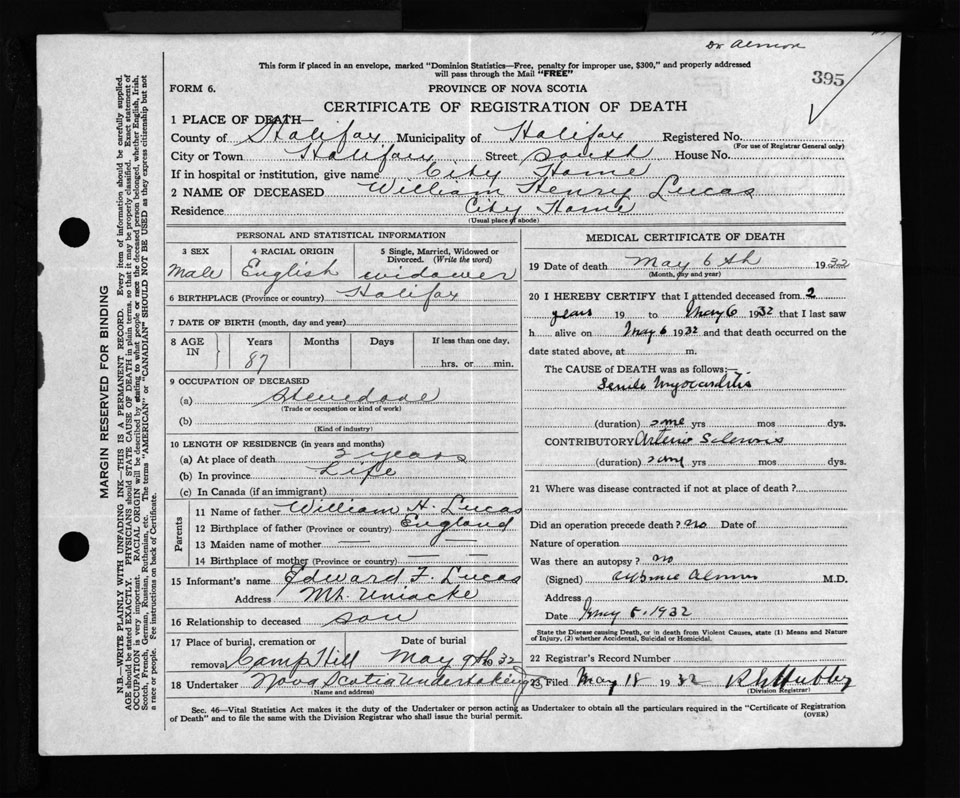 Dr Almon
This form if placed in an envelope, marked "Dominion Statistics—Free, penalty for improper use, $300," and properly addressed
will pass through the Mail "FREE"
395
FORM 6.
PROVINCE OF NOVA SCOTIA
CERTIFICATE OF REGISTRATION OF DEATH
1 PLACE OF DEATH—
County of Halifax Municipality of Halifax Registered No.
(For use of Registrar General only)
City or Town Halifax Street South House No.
If in hospital or institution, give name City Home
2 NAME OF DECEASED William Henry Lucas
Residence City Home
(Usual place of abode)
MARGIN RESERVED FOR BINDING
N.B.—WRITE PLAINLY WITH UNFADING INK—THIS IS A PERMANENT RECORD. Every item of information should be carefully supplied.
AGE should be stated EXACTLY. PHYSICIANS should STATE CAUSE OF DEATH in plain terms, so that it may be properly classified. Exact statement of
OCCUPATION is very important. RACIAL ORIGIN will be described by stating to what people or race the deceased person belonged, whether English, Irish,
Scotch, French, German, Russian, Ruthenian, etc. The terms "AMERICAN" or "CANADIAN" SHOULD NOT BE USED as they express citizenship but not
a race or people. Fee instructions on back of Certificate.
PERSONAL AND STATISTICAL INFORMATION
3 SEX
Male
4 RACIAL ORIGIN
English
5 Single, Married, Widowed or
Divorced. (Write the word)
widower
6 BIRTHPLACE (Province or country) Halifax
7 DATE OF BIRTH (month, day and year)
8 AGE
IN
Years Months Days If less than one day,
87 hrs. or min.
9 OCCUPATION OF DECEASED
(a) Stevedore
(Trade or occupation or kind of work)
(b)
(Kind of industry)
10 LENGTH OF RESIDENCE (in years and months)
(a) At place of death 2 years
(b) In province Life
(c) In Canada (if an immigrant)
Parents
11 Name of father William H. Lucas
12 Birthplace of father (Province or country) England
13 Maiden name of mother — —
14 Birthplace of mother (Province or country) — —
15 Informant's name Edward F. Lucas
Address Mt. Uniacke
16 Relationship to deceased son
17 Place of burial, cremation or Date of burial
removal Camp Hill May 9th 1932
18 Undertaker Nova Scotia Undertaking
(Name and address)
MEDICAL CERTIFICATE OF DEATH
19 Date of death May 6th 1932
(Month, day and year)
20 I HEREBY CERTIFY that I attended deceased from 2
years 19 to May 6 1932 that I last saw
h alive on May 6 1932 and that death occurred on the
date stated above, at m.
The CAUSE of DEATH was as follows:—
Senile Myocarditis
(duration) some yrs mos dys.
CONTRIBUTORY Arterio Sclerosis
(duration) yrs mos dys.
21 Where was disease contracted if not at place of death?
Did an operation precede death? no Date of
Nature of operation
Was there an autopsy? no
(Signed) Almon M.D.
Address
Date May 5. 1932
State the Disease causing Death, or in death from Violent Causes, state (1) Means and Nature
of Injury, (2) whether Accidental, Suicidal or Homicidal.
22 Registrar's Record Number
23 Filed May 18 1932
(Division Registrar)
Sec. 46—Vital Statistics Act makes it the duty of the Undertaker or person acting as Undertaker to obtain all the particulars required in the "Certificate of Registration
of Death" and to file the same with the Division Registrar who shall issue the burial permit. (OVER)